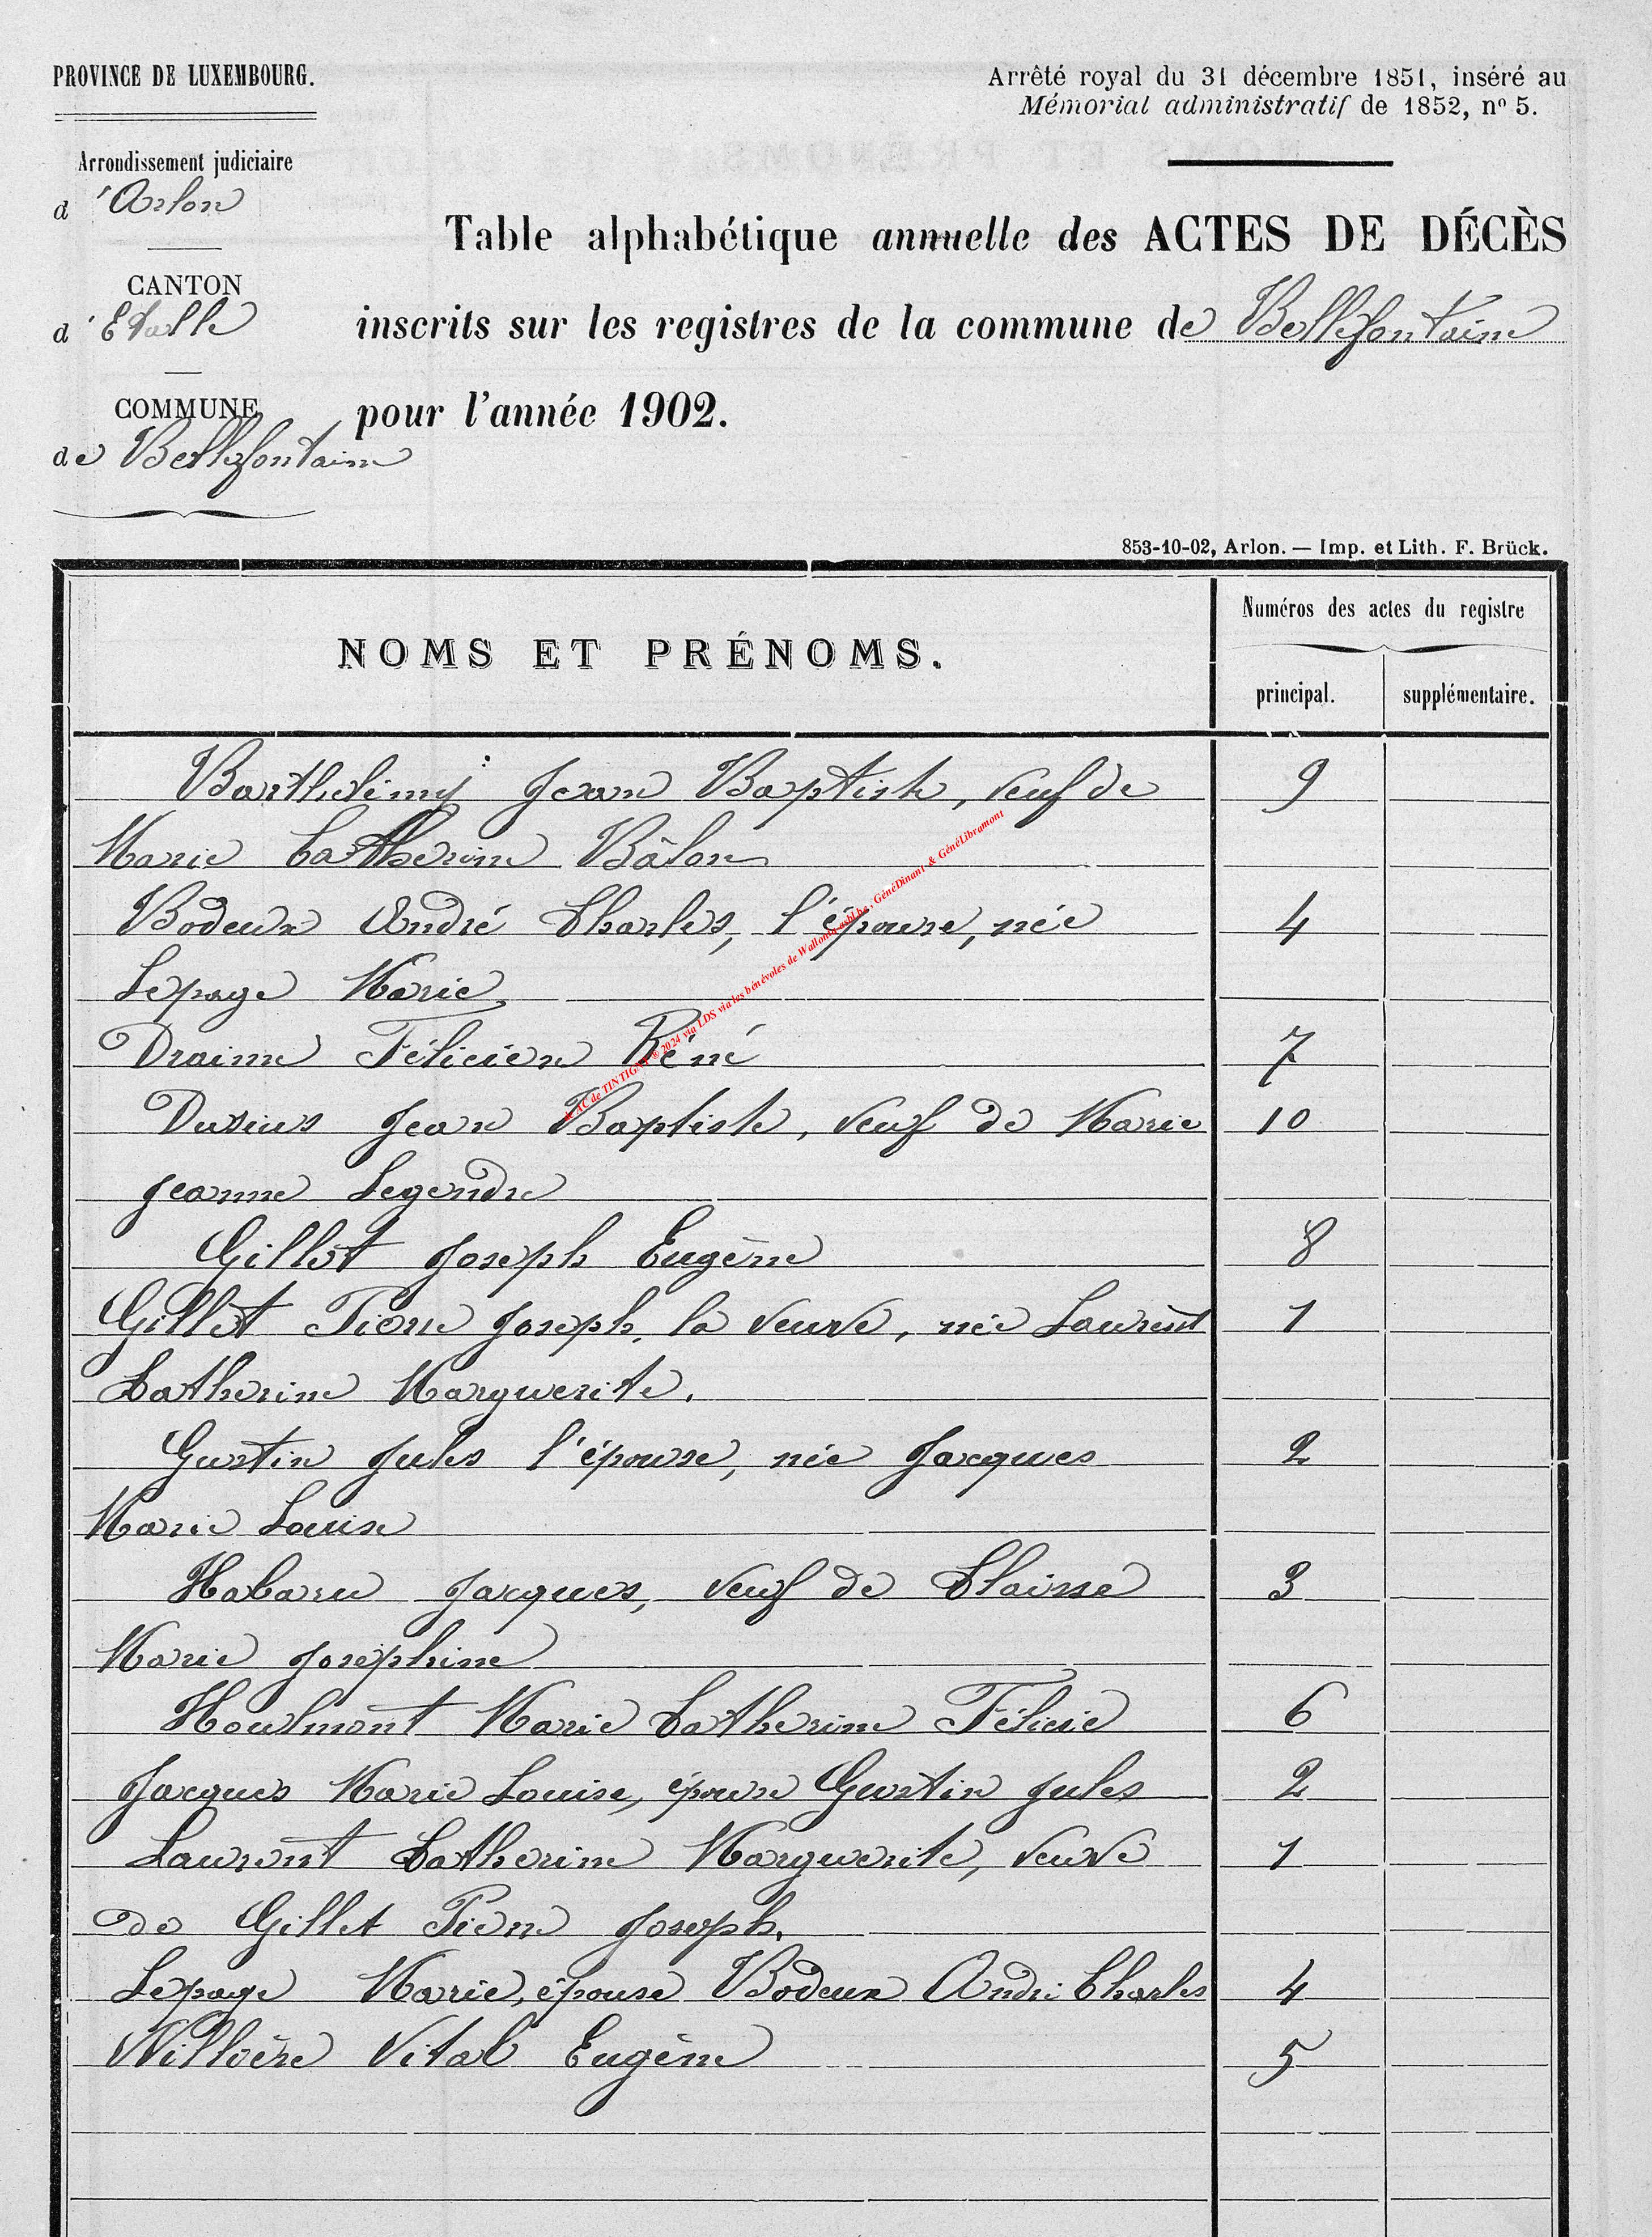 PROVINCE DE LUXEMBOURG.
Arrêté royal du 31 décembre 1851, inséré au
Mémorial administratif de 1852, nº 5.
Arrondissement judiciaire
d'Arlon
CANTON
d'Etalle
COMMUNE
de Bellefontaine
Table alphabétique annuelle des ACTES DE DÉCÈS
inscrits sur les registres de la commune de Bellefontaine
pour l'année 1902.
853-10-02, Arlon. — Imp. et Lith. F. Brück.
NOMS ET PRÉNOMS.
Numéros des actes du registre
principal. supplémentaire.
Barthelémy Jean Baptiste, veuf de 9
Marie Catherine Bâlon
Bodeux André Charles, l'épouse, née 4
Lepage Marie
Draime Félicien Réné 7
Dusius Jean Baptiste, veuf de Marie 10
Jeanne Legendre
Gillot Joseph Eugène 8
Gillet Pierre Joseph, la veuve, née Laurent 1
Catherine Marguerite.
Gustin Jules l'épouse, née Jacques 2
Marie Louise
Habaru Jacques, veuf de Claisse 3
Marie Joséphine
Houlmont Marie Catherine Félicie 6
Jacques Marie Louise, épouse Gustin Jules 2
Laurent Catherine Marguerite, veuve 1
de Gillet Pierre Joseph.
Lepage Marie, épouse Bodeux André Charles 4
Willière Vital Eugène 5
AC de TINTIGNY © 2024 via LDS via les bénévoles de Wallonia asbl.be, GénéDinant & GénéLibramont